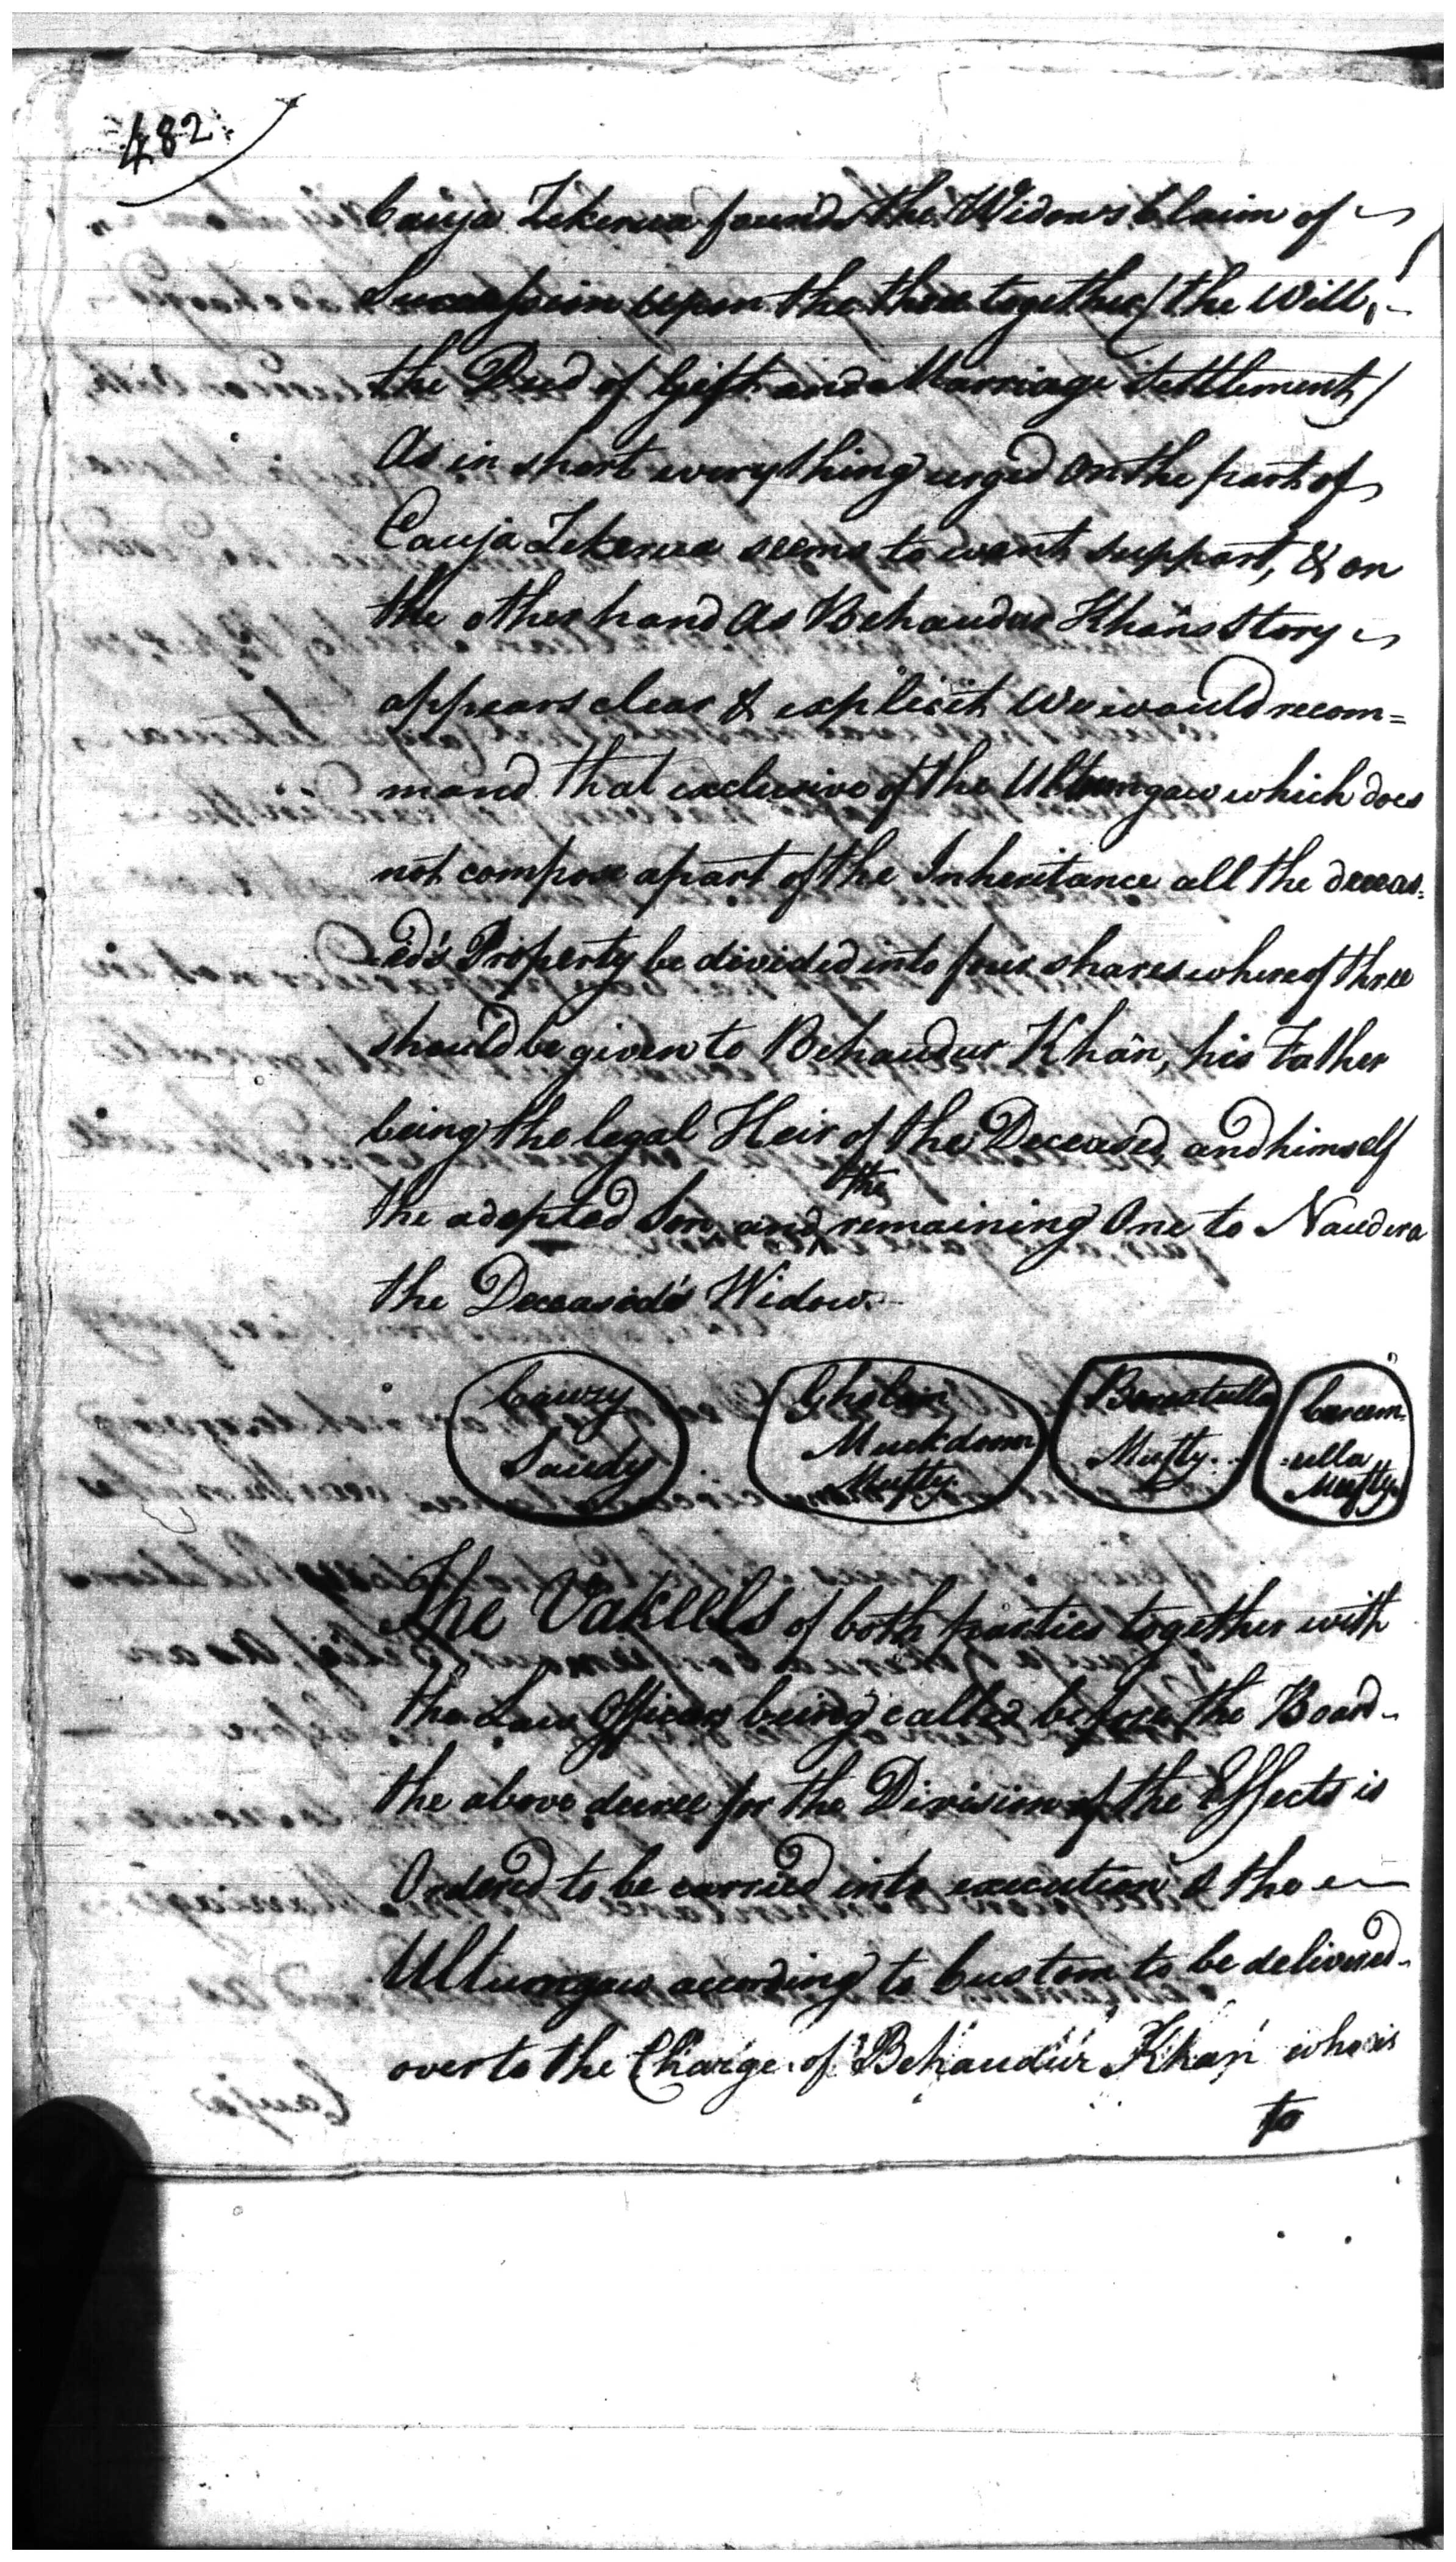 482
Cauja Zekerea founds the Widow's Claim of
Succession upon the three together/ the Will,
the Deed of Gift and Marriage settlement/
As in short every thing urged on the part of
Cauja Zekerea seems to want support, & on
the other hand As Behaudur Khân's Story
appears clear & explicit We would recom=
mend that exclusive of the Ultumgaw which does
not compose a part of the Inheritance all the deceas=
ed's Property be divided into four shares whereof three
should be given to Behaudur Khân, his Father
being the legal Heir of the Deceased, and himself
the adopted Son and the remaining One to Naudera
the Deceased's Widow.
Cauzy
Saudy
Gholam
Muckdom
Mufty.
Mufty.
Careem
ulla
Mufty
The Vakeels of both parties together with
the Law Officers being called before the Board
the above decree for the Division of the Effects is
Ordered to be carried into execution & the
Ultumgaw according to Custom to be delivered
over to the Charge of Behaudur Khan who is
to